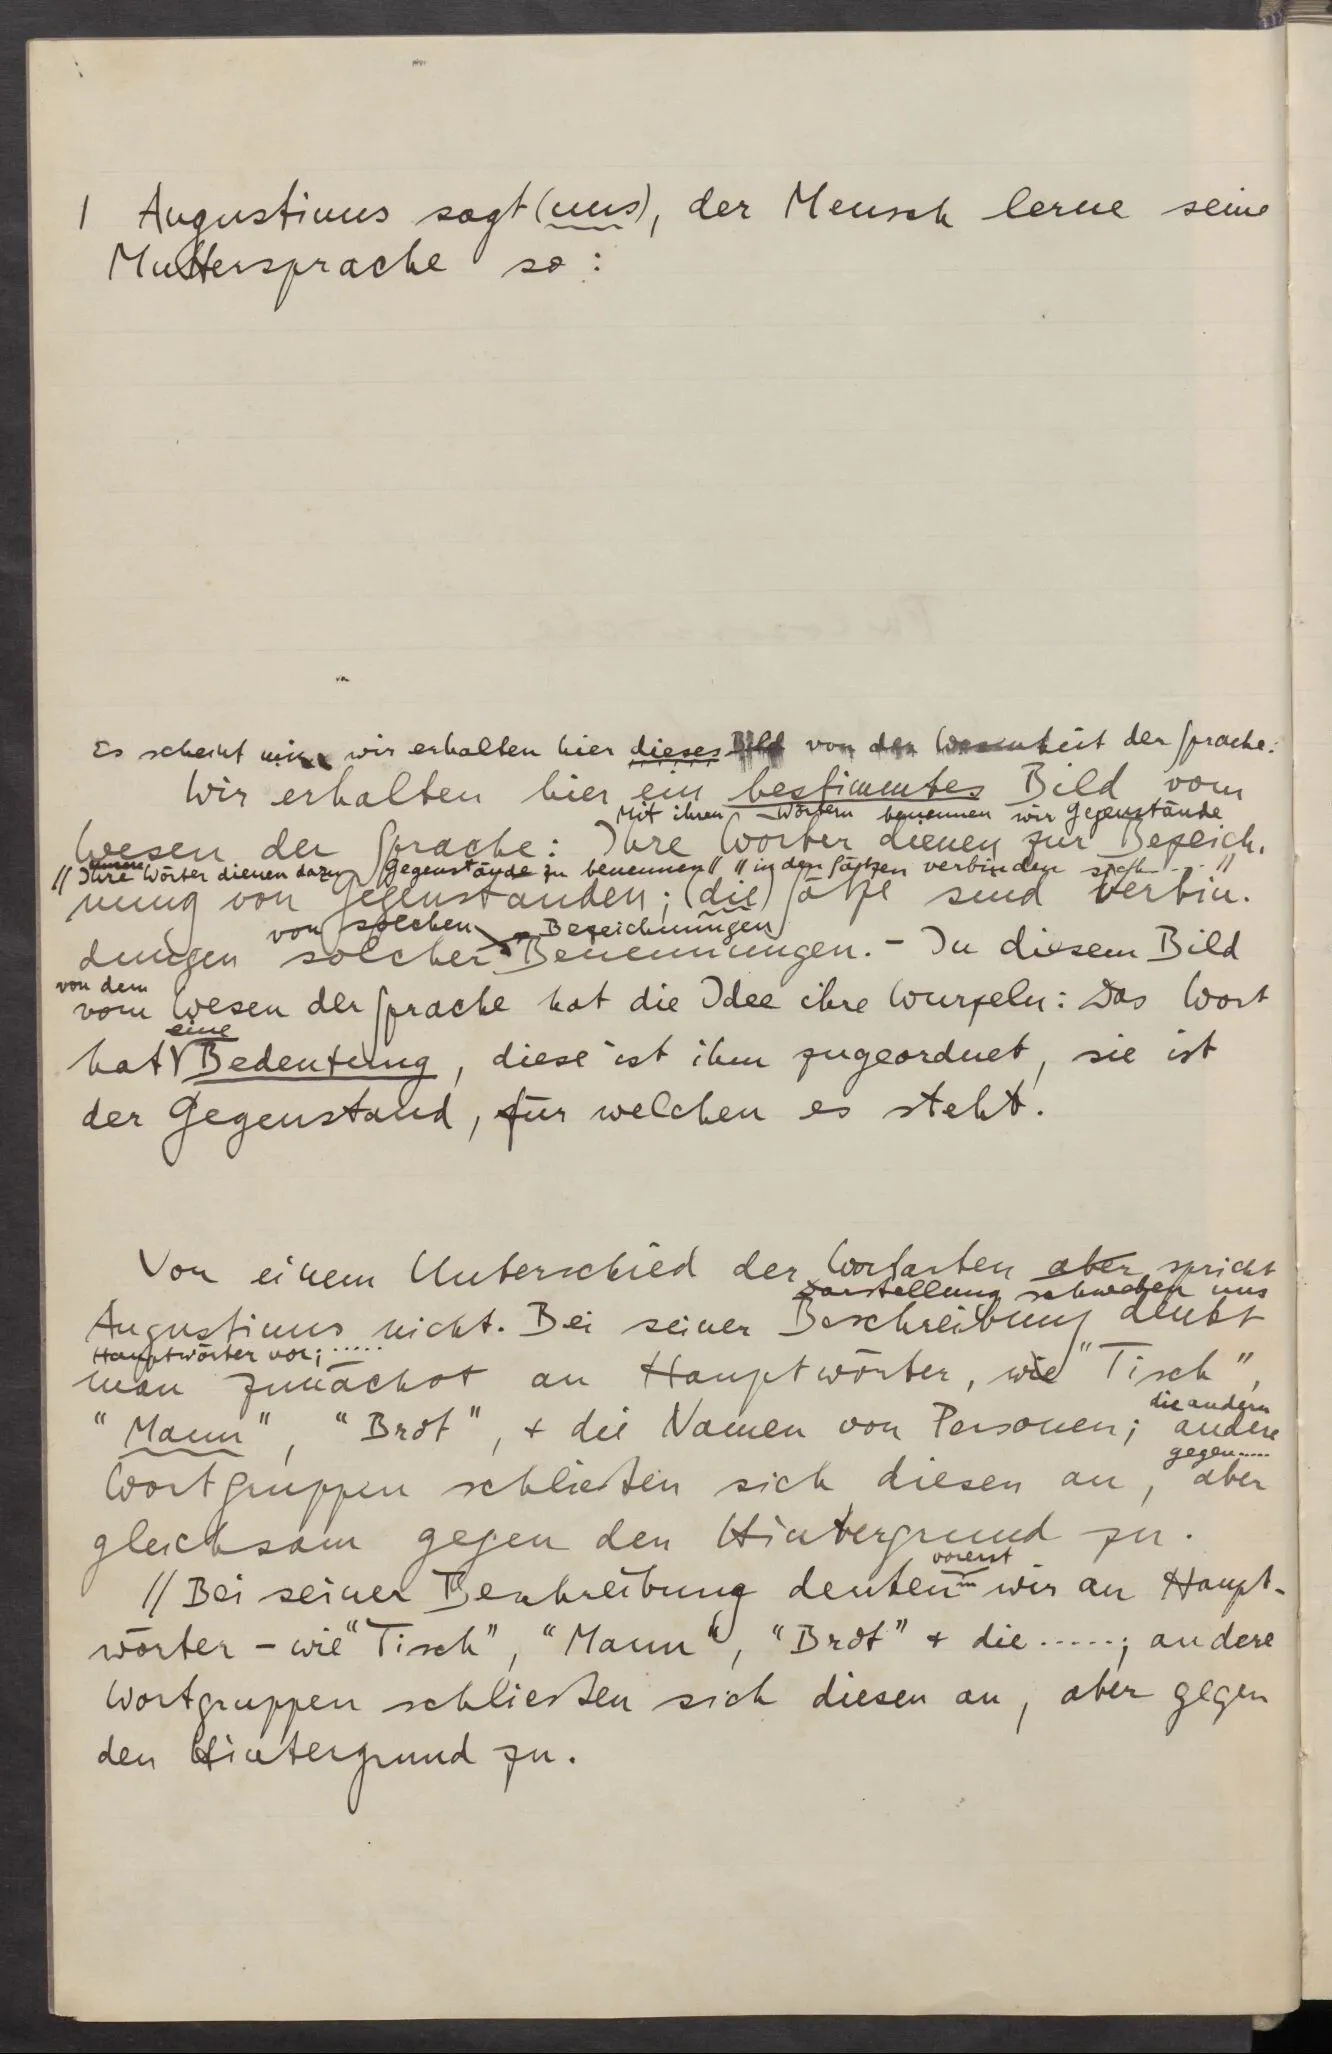 1 Augustinus sagt (uns), der Mensch lerne seine
Muttersprache so:
Es scheint mir wir erhalten hier dieses Bild von der Wesenheit der Sprache:
Wir erhalten hier ein bestimmtes Bild vom
Mit ihren Wörtern benennen wir Gegenstände
Wesen der Sprache: Ihre Wörter dienen zur Bezeich-
// Ihre Wörter dienen dazu Gegenstände zu benennen" " in den Sätzen verbinden sich ... "
nung von Gegenständen; (die) Sätze sind Verbin-
von solchen Bezeichnungen
dungen solcher Benennungen. – In diesem Bild
von dem
vom Wesen der Sprache hat die Idee ihre Wurzeln: Das Wort
eine
hat Bedeutung, diese ist ihm zugeordnet, sie ist
der Gegenstand, für welchen es steht.
Von einem Unterschied der Wortarten aber spricht
Darstellung schweben uns
Augustinus nicht. Bei seiner Beschreibung denkt
Hauptwörter vor; .....
man zunächst an Hauptwörter, wie "Tisch",
die andern
"Mann", "Brot", + die Namen von Personen; andere
gegen.....
Wortgruppen schließen sich diesen an, aber
gleichsam gegen den Hintergrund zu.
vorerst
// Bei seiner Beschreibung denken wir an Haupt-
wörter – wie "Tisch", "Mann", "Brot" + die .....; andere
Wortgruppen schließen sich diesen an, aber gegen
den Hintergrund zu.